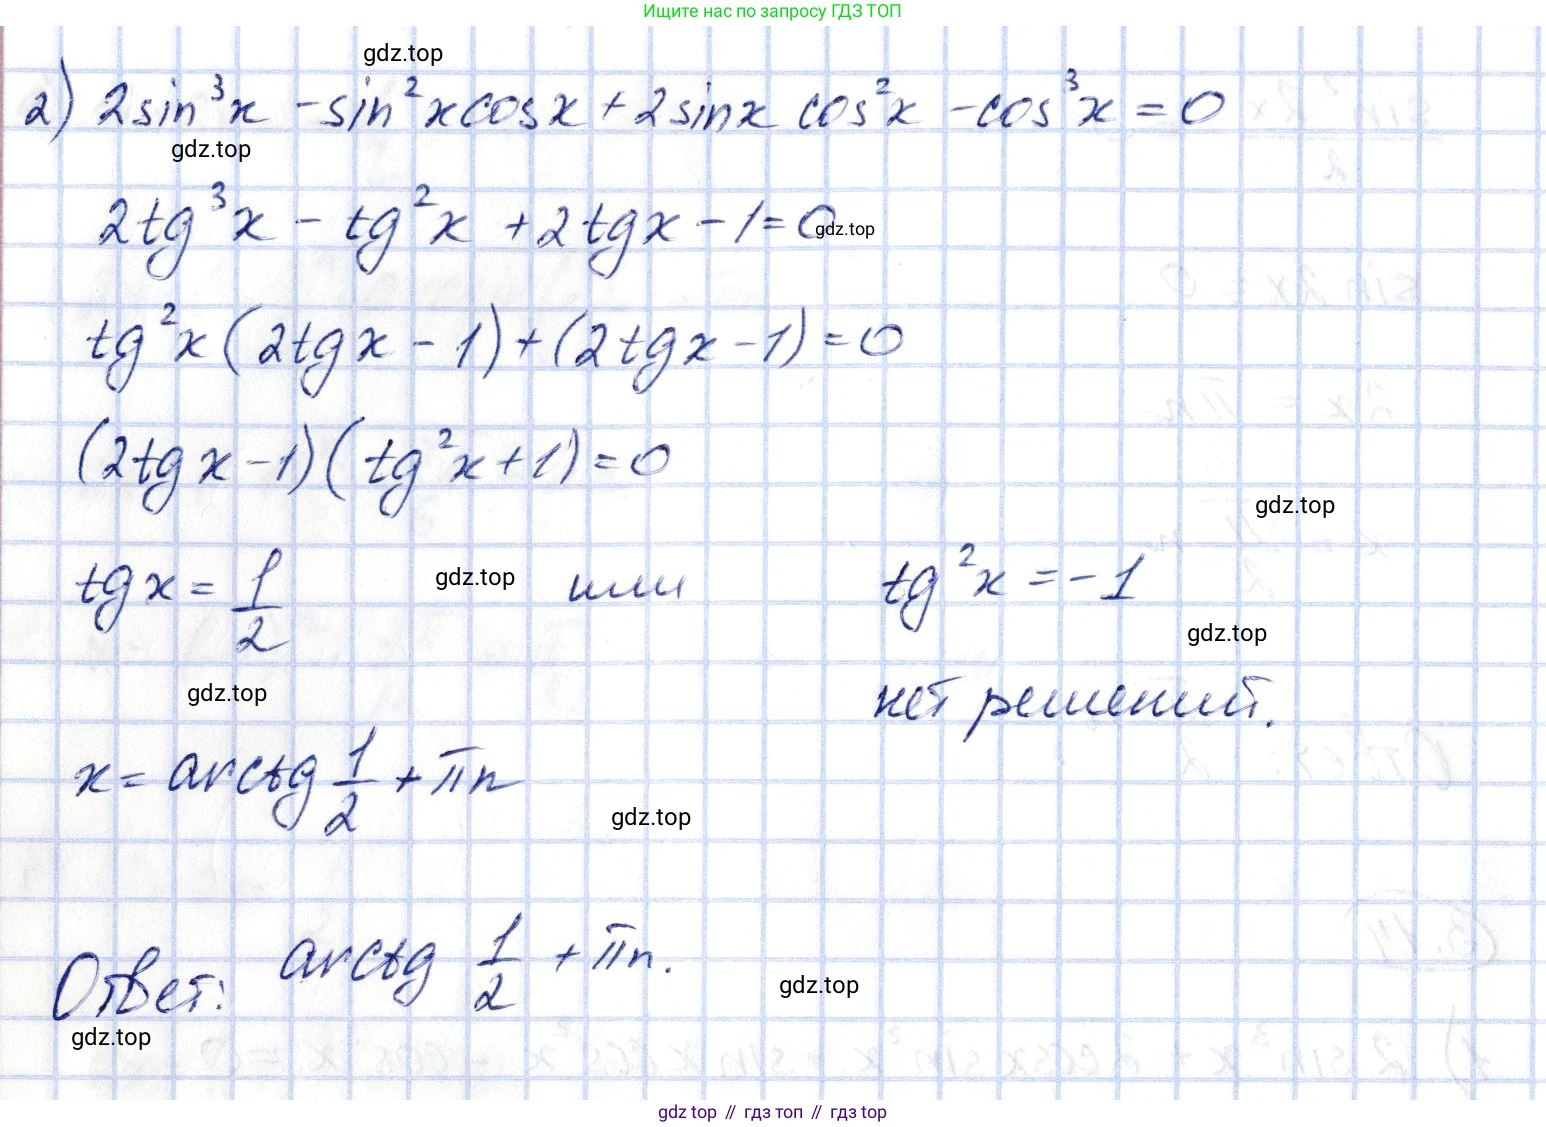 Ищите нас по запросу ГДЗ ТОП
gdz.top
2) 2sin³x - sin²x cosx + 2sinx cos²x - cos³x = 0
gdz.top
2tg³x - tg²x + 2tgx - 1 = 0
gdz.top
tg²x (2tgx - 1) + (2tgx - 1) = 0
(2tgx - 1) (tg²x + 1) = 0
gdz.top
tgx = 1/2 или tg²x = -1
gdz.top
gdz.top
gdz.top
нет решений.
x = arctg 1/2 + πn
gdz.top
Ответ: arctg 1/2 + πn.
gdz.top
gdz.top
gdz top // гдз топ // gdz top